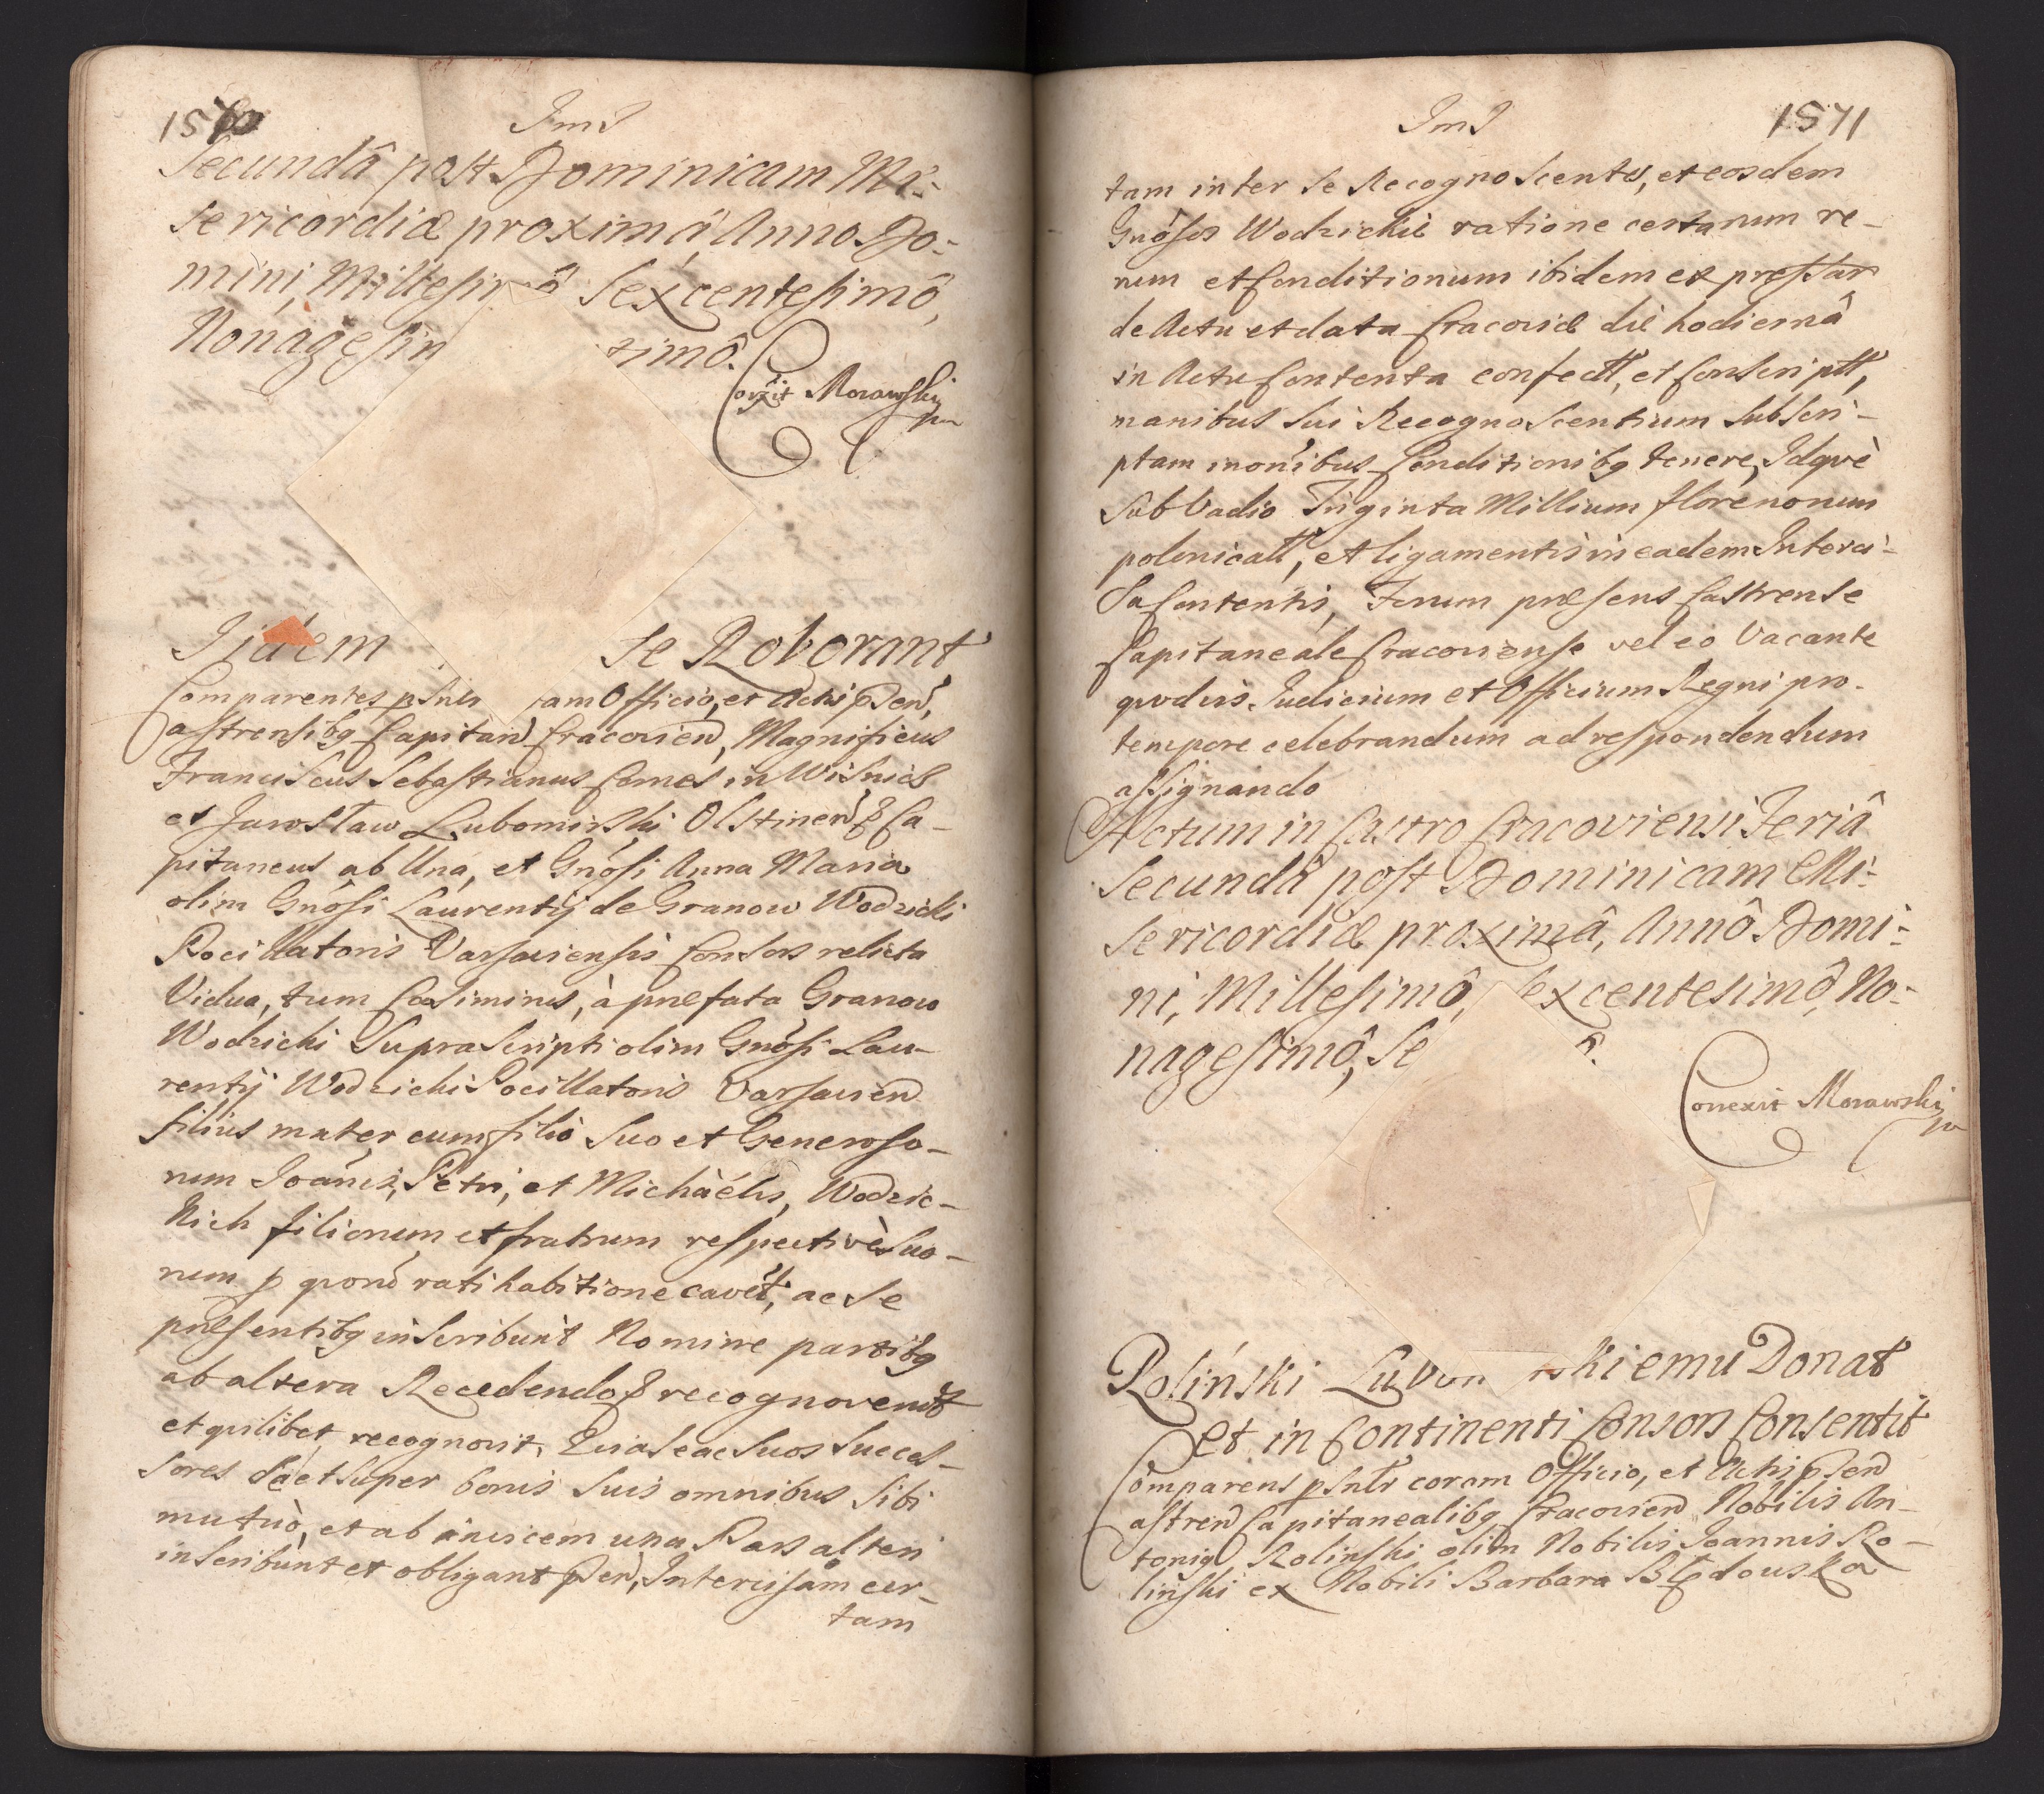 1570
JmJ
Secundâ post Dominicam Mi-
sericordiæ proximâ Anno Do-
mini, Millesimô Sexcentesimô,
Nonagesim timô.
Correxit Morawski
mp
Iidem Se Roborant
Comparentes psntr ram Officio, et Actis psen,
Castrensibq Capitan Cracovien, Magnificus
Franciscus Sebastianus Comes in Wisnicz
et Jarosław Lubomirski Olstinen & Ca-
pitaneus ab Una, et Gnosi Anna Maria
olim Gnosi Laurentij de Granow Wodzicki
Pocillatoris Varsaviensis Consors relicta
Vidua, tum Casimirus, à præfata Granow
Wodzicki Suprascripti olim Gnosi Lau-
rentij Wodzicki Pocillatoris Varsavien
filius mater cum filio suo et Generoso-
rum Joānis, Petri, et Michàélis, Wodzic-
kich filiorum et fratrum respectivè suo-
rum p quorū ratihabitione cavēt, ac se
præsentibq inscribunt Nomine partibq
ab altera Recedendo & recognoverūt
et quilibet recognovit. Quia se ac suos succes-
sores sa et super bonis suis omnibus sibi
mutuò, et ab invicem una Pars alteri
inscribunt et obligant psen, Intercisam cer-
tam

JmJ
1571
tam inter se Recognoscentes, et eosdem
Gnosos Wodzickie ratione certarum re-
rum et Conditionum ibidem expressar
de Actu et data Cracoviæ die hodierna
in Actu Contenta confectt, et Conscriptt,
manibus sui Recognoscentium subscri-
ptam inonibus Conditionibq tenere, Idquè
sub Vadio Triginta Millium florenorum
polonicall, et ligamentis in eadem Interci-
sa Contentis, Forum præsens Castrense
Capitaneale Cracoviense vel eo Vacante
quodvis Judicium et Officium Regni pro
tempore celebrandum ad respondendum
assignando
Actum in Castro Cracoviensi Feriâ
Secundâ post Dominicam Mi-
sericordiæ proximâ, Annô Domi-
ni, Millesimô, Sexcentesimô, No-
nagesimô, Se ô.
Correxit Morawski
mp
Roliński Lubom rskiemu Donat
et in Continenti Consors Consentit
Comparens psntr coram Officio, et Actis psen
Castren Capitanealibq Cracovien Nobilis An-
toniq Rolinski olim Nobilis Joannis Ro-
linski ex Nobili Barbara Błędowska